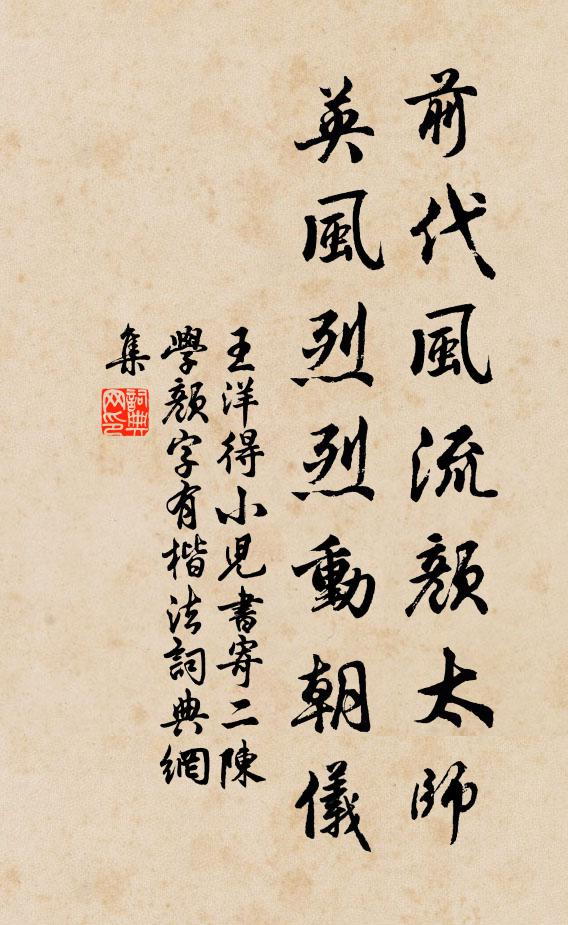 前代風流顏太師
英風烈烈動朝儀
王洋得小兒書寄二陳
學顏字有楷法詞典網
集
詞典
网印